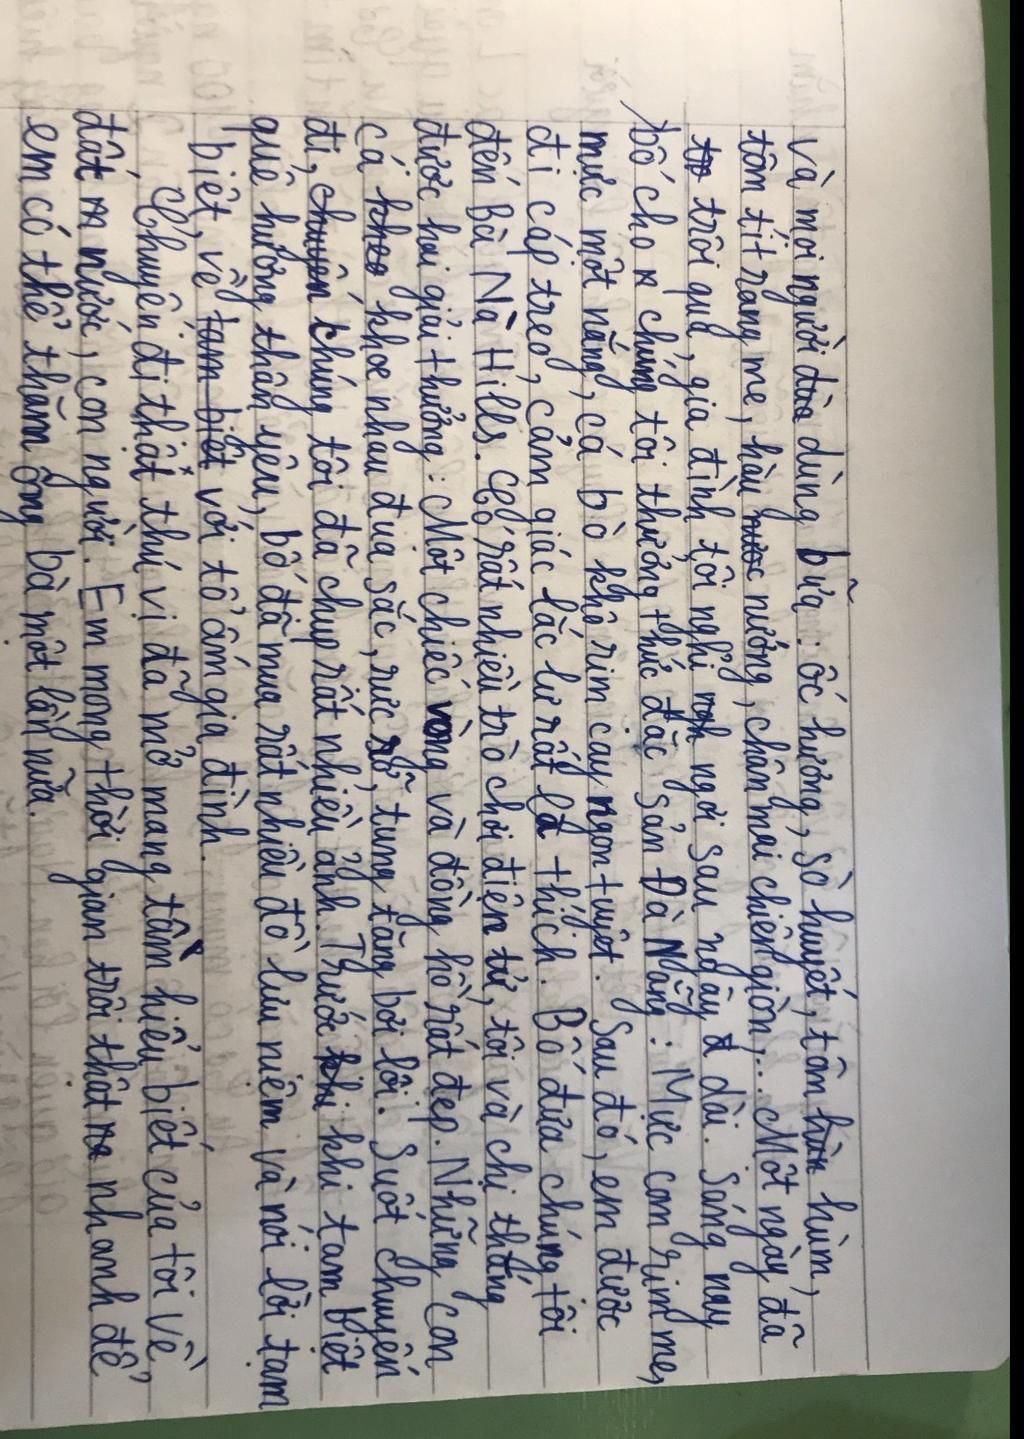 và mọi người dùng bữa: ốc hương, sò huyết, tôm hùm,
tôm tít rang me, hàu nướng, chân mai chiên giòn,... Một ngày đã
trôi qua, gia đình tôi nghỉ ngơi sau ngày dài. Sáng nay
bố cho chúng tôi thưởng thức đặc sản Đà Nẵng: Mực cơm rim me,
mực một nắng, cá bò khô rim cay ngon tuyệt. Sau đó, em được
đi cáp treo, cảm giác lắc lư rất thích. Bố đưa chúng tôi
đến Bà Nà Hills. Có rất nhiều trò chơi điện tử, tôi và chị thắng
được hai giải thưởng: Một chiếc vòng và đồng hồ rất đẹp. Những con
cá khoe nhau đua sắc, rực rỡ, tung tăng bơi lội. Suốt chuyến
đi, chúng tôi đã chụp rất nhiều ảnh. Trước khi tạm biệt
quê hương thân yêu, bố đã mua rất nhiều đồ lưu niệm và nói lời tạm
biệt, về với tổ ấm gia đình.
Chuyến đi thật thú vị đã mở mang tầm hiểu biết của tôi về
đất nước, con người. Em mong thời gian trôi thật nhanh để
em có thể thăm ông bà một lần nữa.